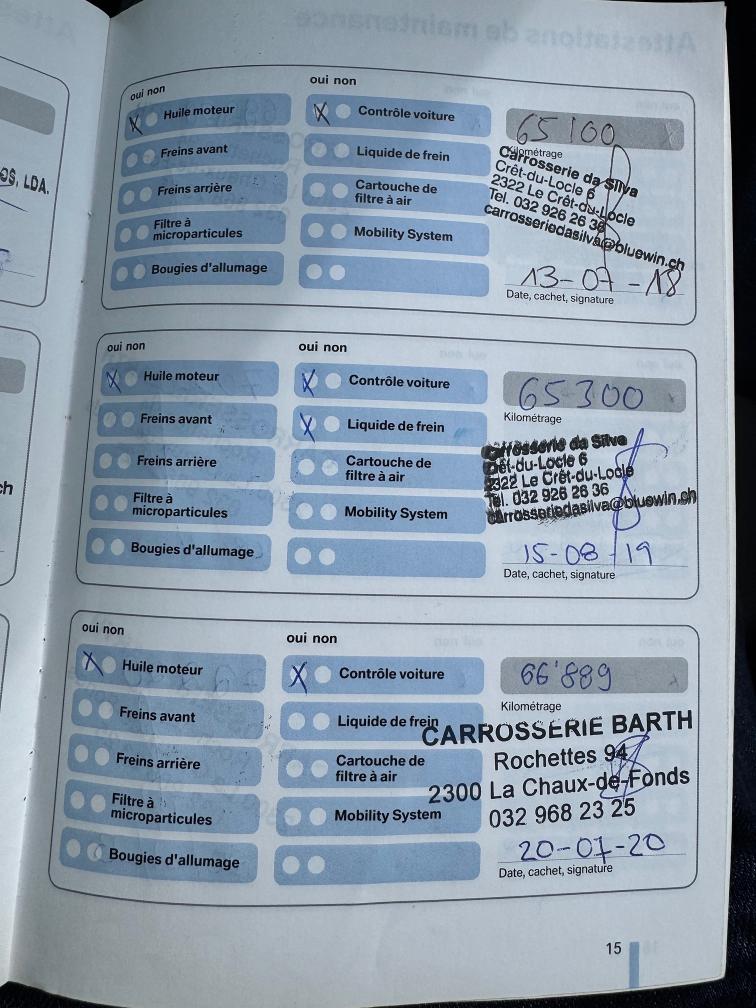 OS, LDA.
ch
oui non
oui non
Huile moteur
Contrôle voiture
65 100
Kilométrage
Freins avant
Liquide de frein
Carrosserie da Silva
Crêt-du-Locle 6
2322 Le Crêt-du-Locle
Tel. 032 926 26 36
carrosseriedasilva@bluewin.ch
Freins arrière
Cartouche de
filtre à air
Filtre à
microparticules
Mobility System
Bougies d'allumage
13-07-18
Date, cachet, signature
oui non
oui non
Huile moteur
Contrôle voiture
65300
Kilométrage
Freins avant
Liquide de frein
Carrosserie da Silva
Crêt-du-Locle 6
2322 Le Crêt-du-Locle
Tel. 032 926 26 36
carrosseriedasilva@bluewin.ch
Freins arrière
Cartouche de
filtre à air
Filtre à
microparticules
Mobility System
Bougies d'allumage
15-08-19
Date, cachet, signature
oui non
oui non
Huile moteur
Contrôle voiture
66'889
Kilométrage
Freins avant
Liquide de frein
CARROSSERIE BARTH
Rochettes 94
2300 La Chaux-de-Fonds
032 968 23 25
Freins arrière
Cartouche de
filtre à air
Filtre à
microparticules
Mobility System
Bougies d'allumage
20-07-20
Date, cachet, signature
15